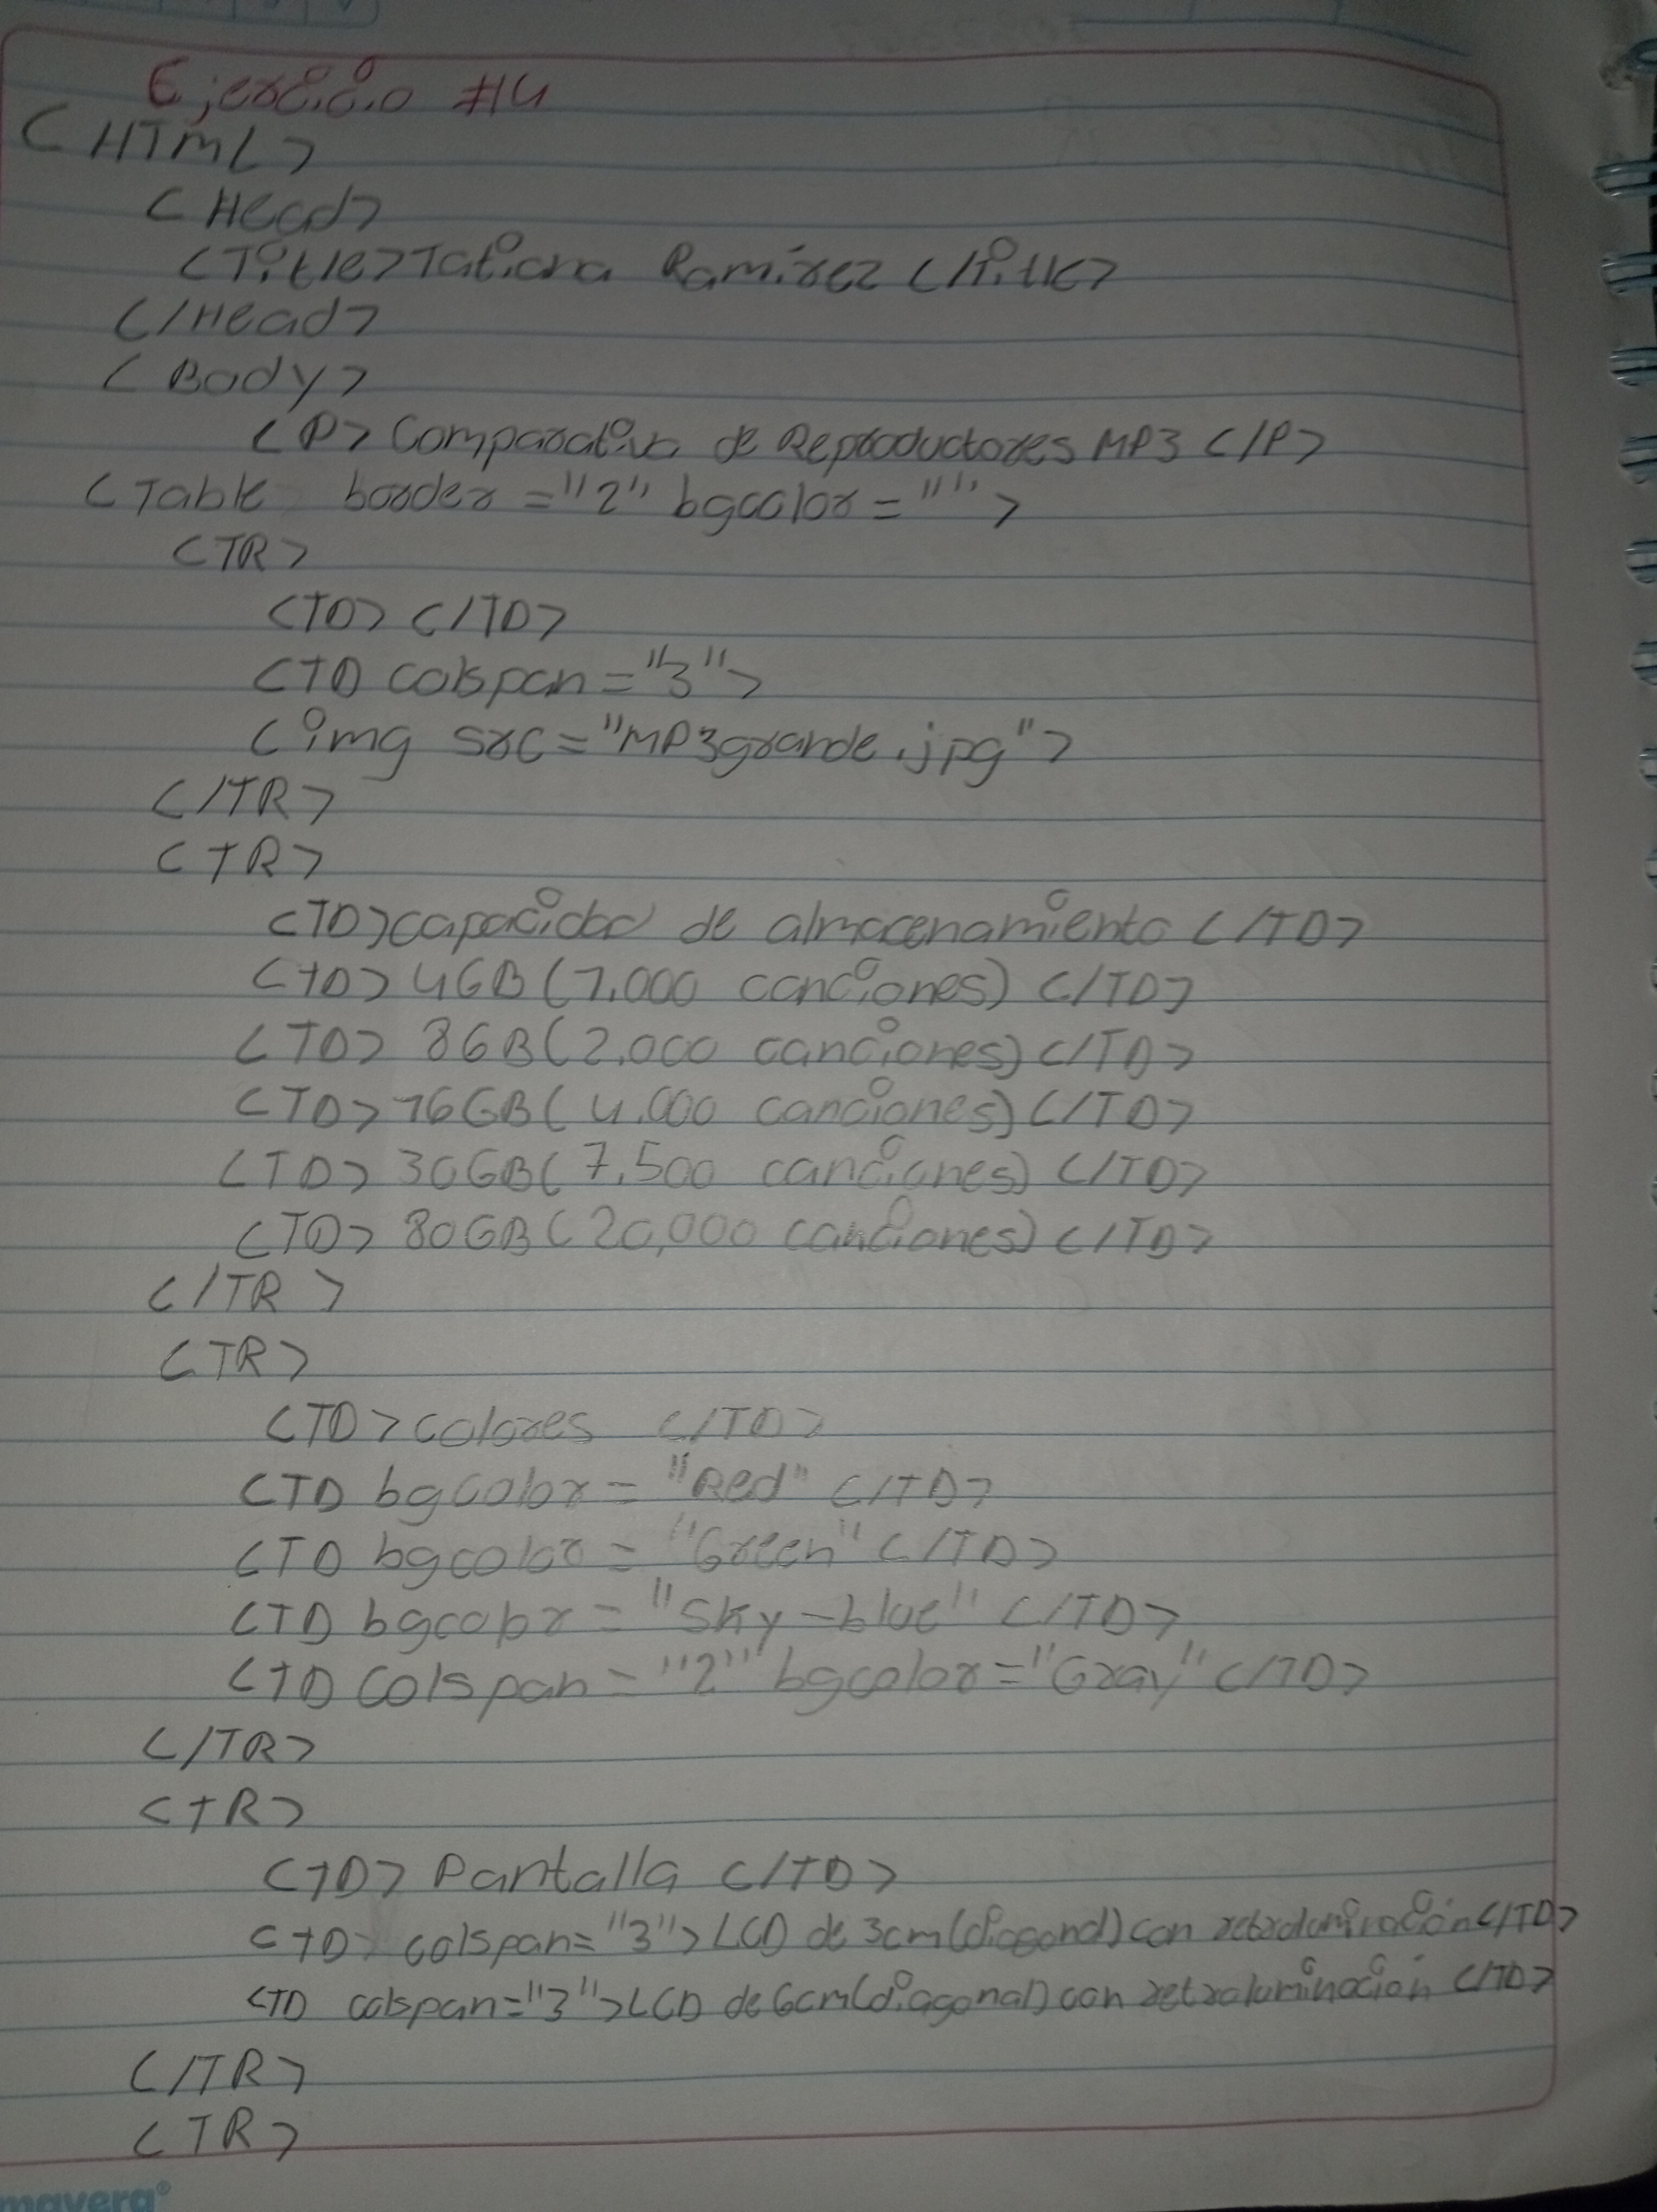 Ejercicio #4
<HTML>
<Head>
<Title>Tatiana Ramírez </Title>
</Head>
<Body>
<P> Comparativa de Reproductores MP3 </P>
<Table border="2" bgcolor="">
<TR>
<TD> </TD>
<TD colspan="3">
<img src="MP3grande.jpg">
</TR>
<TR>
<TD>capacidad de almacenamiento </TD>
<TD> 4GB(1.000 canciones) </TD>
<TD> 8GB(2.000 canciones) </TD>
<TD> 16GB(4.000 canciones) </TD>
<TD> 30GB(7.500 canciones) </TD>
<TD> 80GB(20,000 canciones) </TD>
</TR>
<TR>
<TD>colores </TD>
<TD bgcolor="Red" </TD>
<TD bgcolor="Green" </TD>
<TD bgcolor="Sky-blue" </TD>
<TD colspan="2" bgcolor="Gray" </TD>
</TR>
<TR>
<TD> Pantalla </TD>
<TD> colspan="3">LCD de 3cm(diagonal) con retroluminación</TD>
<TD colspan="3">LCD de 6cm(diagonal) con retroluminación </TD>
</TR>
<TR>
mavera®